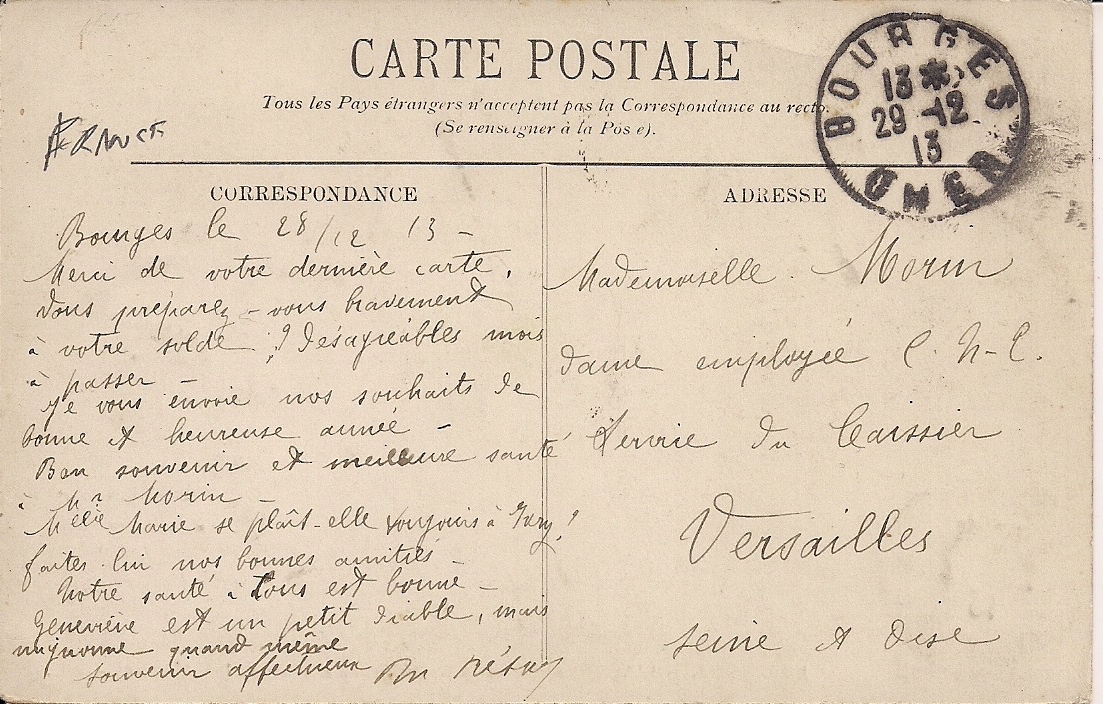 CARTE POSTALE
Tous les Pays étrangers n'acceptent pas la Correspondance au recto.
(Se renseigner à la Pos e).
BOURGES
13 *
29 -12
13
CHER
CORRESPONDANCE
Bourges le 28/12 13 -
Merci de votre dernière carte.
Vous préparez-vous bravement
à votre solde ? Désagréables mois
à passer -
Je vous envoie nos souhaits de
bonne et heureuse année -
Bon souvenir et meilleure santé
à Mr Morin -
Melle Marie se plaît-elle toujours à Ivry ?
faites lui nos bonnes amitiés -
Notre santé à tous est bonne -
Geneviève est un petit diable, mais
mignonne quand même
souvenir affectueux
ADRESSE
Mademoiselle Morin
dame employée C. N-E.
Service du Caissier
Versailles
Seine et Oise